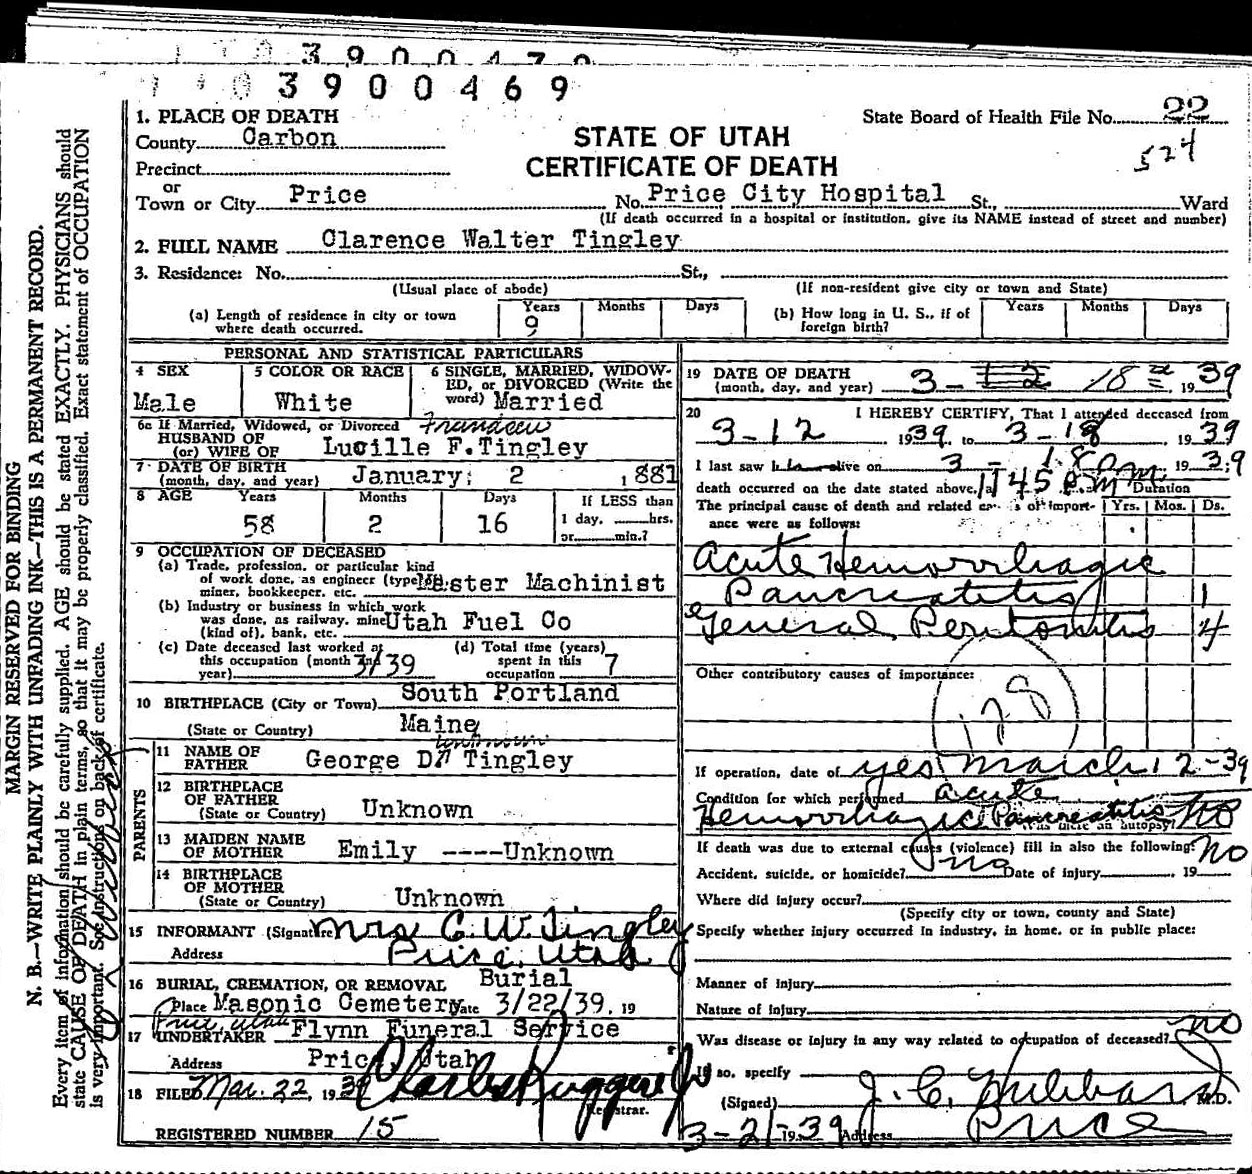 3900470
3900469
MARGIN RESERVED FOR BINDING
N. B.—WRITE PLAINLY WITH UNFADING INK—THIS IS A PERMANENT RECORD.
Every item of information should be carefully supplied. AGE should be stated EXACTLY. PHYSICIANS should
state CAUSE OF DEATH in plain terms, so that it may be properly classified. Exact statement of OCCUPATION
is very important. See instructions on back of certificate.
1. PLACE OF DEATH
State Board of Health File No. 22
524
County Carbon
STATE OF UTAH
CERTIFICATE OF DEATH
Precinct
or
Town or City Price No. Price City Hospital St., Ward
(If death occurred in a hospital or institution, give its NAME instead of street and number)
2. FULL NAME Clarence Walter Tingley
3. Residence: No. St.,
(Usual place of abode) (If non-resident give city or town and State)
(a) Length of residence in city or town where death occurred. Years 9 Months Days
(b) How long in U. S., if of foreign birth? Years Months Days
PERSONAL AND STATISTICAL PARTICULARS
4 SEX Male
5 COLOR OR RACE White
6 SINGLE, MARRIED, WIDOWED, or DIVORCED (Write the word) Married
6a If Married, Widowed, or Divorced
HUSBAND OF
(or) WIFE OF Lucille F. Tingley
7 DATE OF BIRTH
(month, day, and year) January 2 1881
8 AGE Years 58 Months 2 Days 16 If LESS than 1 day, hrs. or min.?
9 OCCUPATION OF DECEASED
(a) Trade, profession, or particular kind of work done, as engineer (type) miner, bookkeeper, etc. Master Machinist
(b) Industry or business in which work was done, as railway, mine (kind of), bank, etc. Utah Fuel Co
(c) Date deceased last worked at this occupation (month and year) 3/39
(d) Total time (years) spent in this occupation 7
10 BIRTHPLACE (City or Town) South Portland
(State or Country) Maine
PARENTS
11 NAME OF FATHER George D. Tingley
12 BIRTHPLACE OF FATHER
(State or Country) Unknown
13 MAIDEN NAME OF MOTHER Emily ----Unknown
14 BIRTHPLACE OF MOTHER
(State or Country) Unknown
15 INFORMANT (Signature) Mrs C. W. Tingley
Address Price, Utah
16 BURIAL, CREMATION, OR REMOVAL Burial
Place Masonic Cemetery Date 3/22/39, 19
Price, Utah
17 UNDERTAKER Flynn Funeral Service
Address Price, Utah
18 FILED Mar. 22, 1939
Registrar.
REGISTERED NUMBER 15
19 DATE OF DEATH
(month, day, and year) 3-12 18 1939
20 I HEREBY CERTIFY, That I attended deceased from
3-12 1939 to 3-18 1939
I last saw him alive on 3-18 1939
death occurred on the date stated above, at 1145 pm
Duration
The principal cause of death and related causes of importance were as follows: Yrs. Mos. Ds.
Acute Hemorrhagic
Pancreatitis 1
General Peritonitis 4
Other contributory causes of importance:
128
If operation, date of yes March 12-39
Condition for which performed acute
Hemorrhagic Pancreatitis Was there an autopsy? No
If death was due to external causes (violence) fill in also the following: No
Accident, suicide, or homicide? no Date of injury 19
Where did injury occur?
(Specify city or town, county and State)
Specify whether injury occurred in industry, in home, or in public place:
Manner of injury
Nature of injury
Was disease or injury in any way related to occupation of deceased? no
If so, specify
(Signed) J. C. Hubbard M.D.
3-21-1939 Address Price